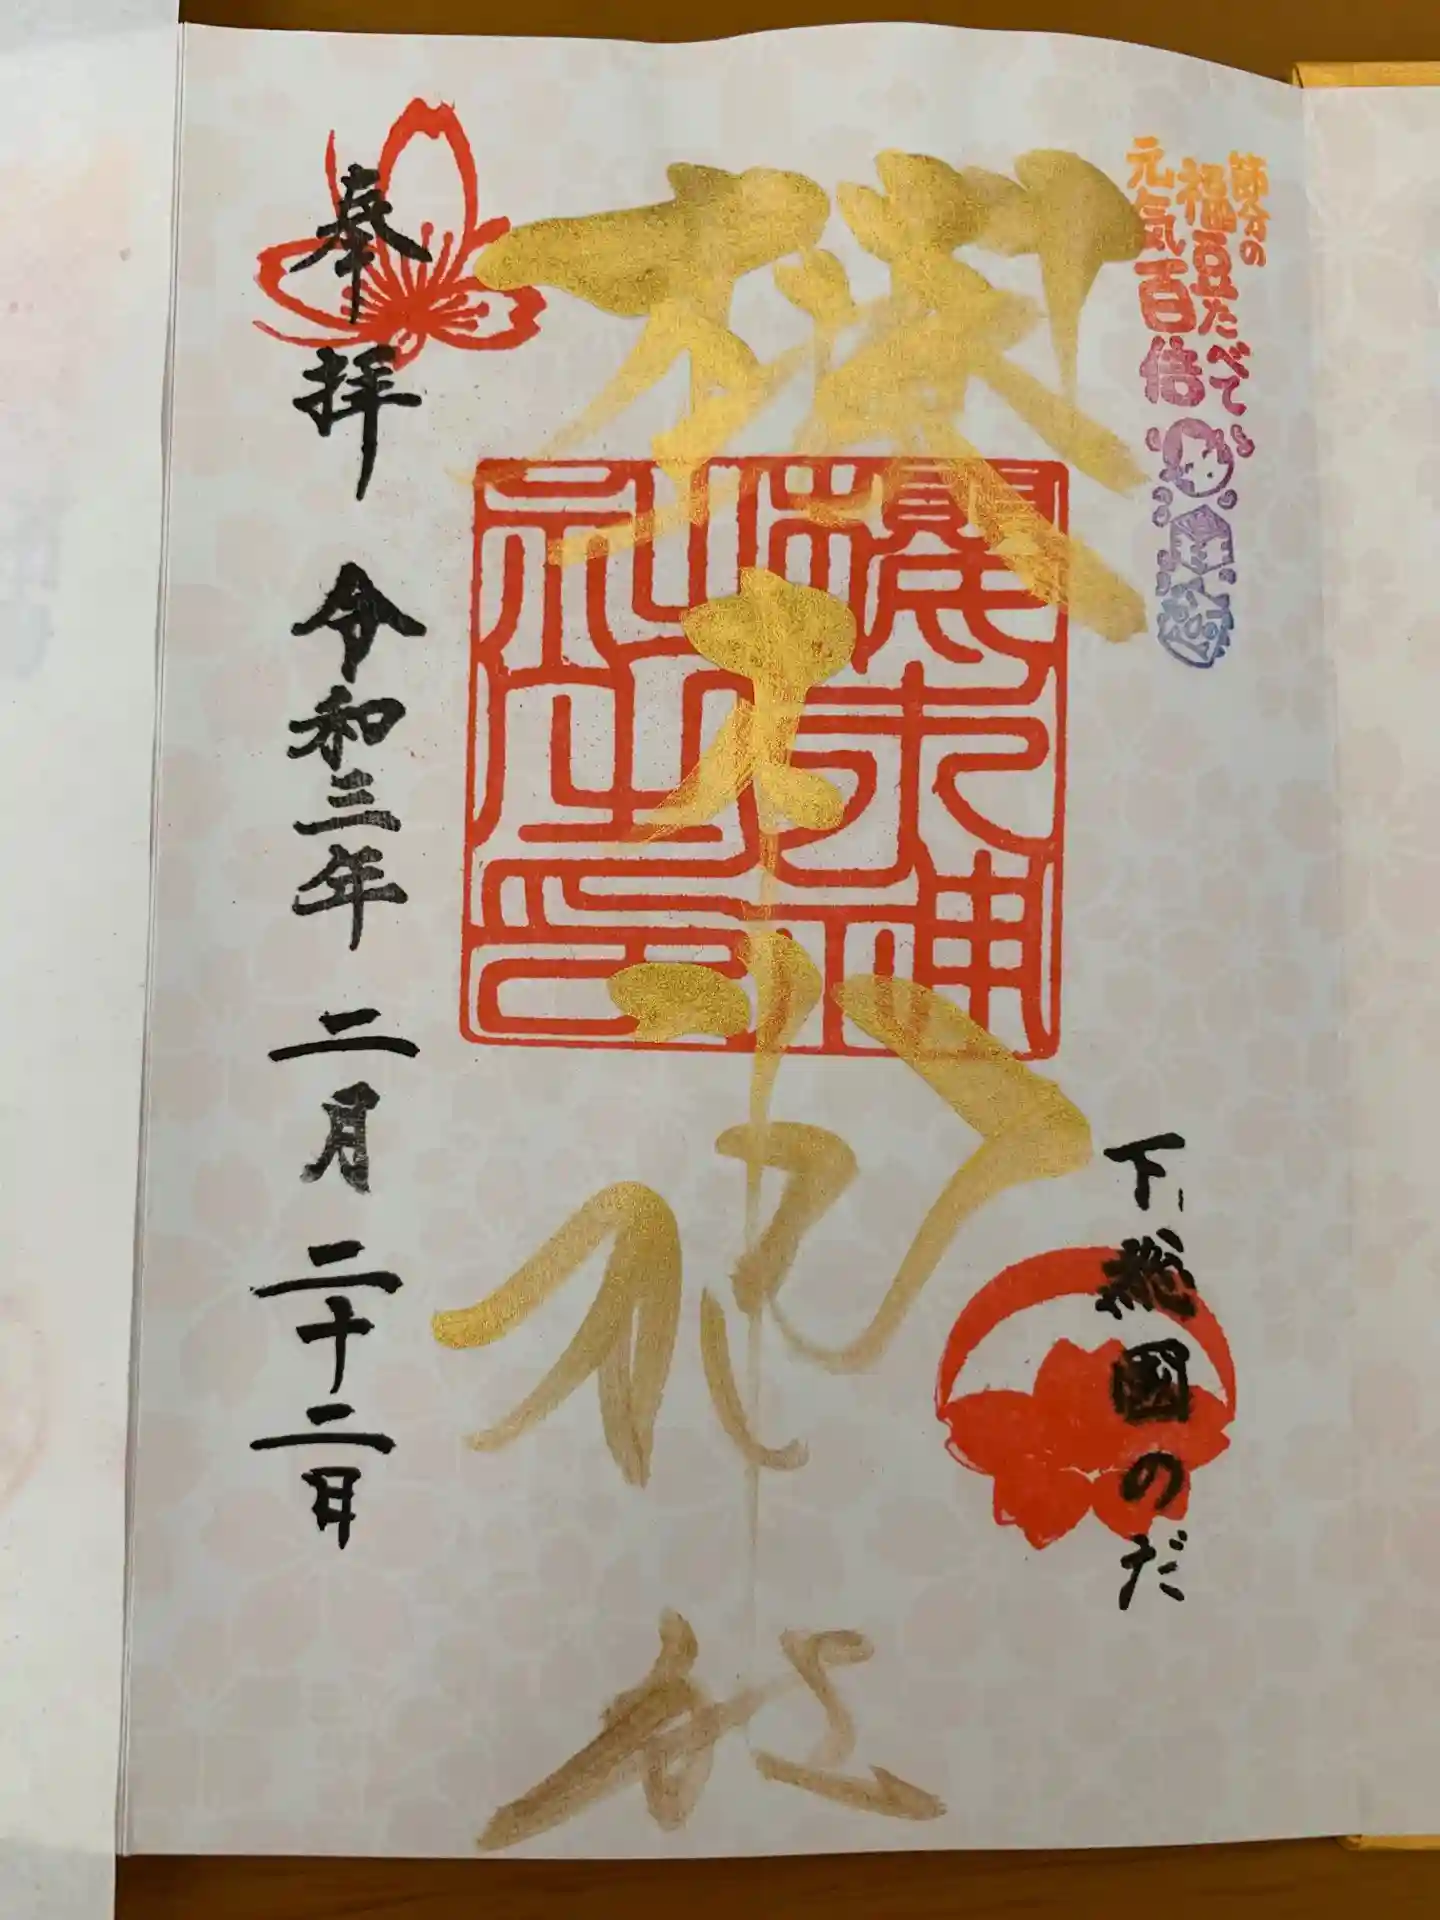 節分の
福豆たべて
元気百倍
下総國のだ
櫻木神社
櫻木神
社之印
奉拝 令和三年 二月 二十二日